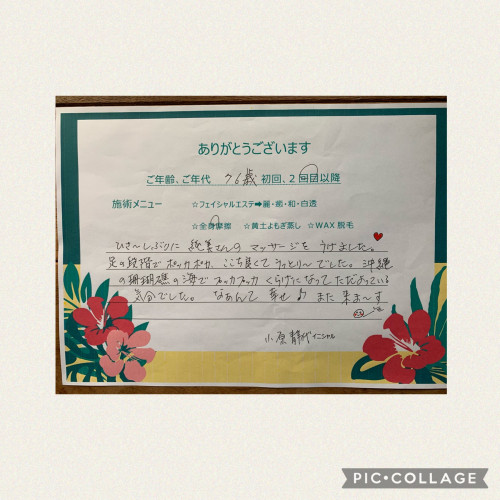 ありがとうございます
ご年齢、ご年代 76歳 初回、2回目以降
施術メニュー ☆フェイシャルエステ➡麗・艶・和・白透
☆全身摩擦 ☆黄土よもぎ蒸し ☆WAX脱毛
ひさ〜しぶりに 純美さんの マッサージを うけました。
足の段階で ポッカポカ、ここち良くて うっとり〜でした。沖縄
の珊瑚礁の海で プッカプッカ くらげになって ただよっている
気分でした。なぁんて 幸せ また来ま〜す
小原 イニシャル
PIC•COLLAGE